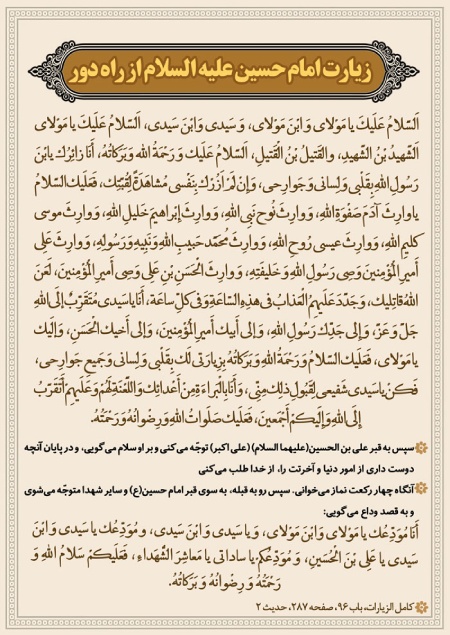 زیارت امام حسین علیه السلام از راه دور
اَلسَّلامُ عَلَیكَ یا مَوْلای وَابنَ مَوْلای، وَ سَیدی وَابْنَ سَیدی، اَلسَّلامُ عَلَیكَ یا مَوْلای
الشَّهیدُ بْنُ الشَّهیدِ، والقَتیلُ بْنُ القَتیلِ، اَلسَّلامُ عَلَیكَ وَ رَحْمَةُ الله وَ بَرَكاتُهُ، أنَا زائِرُكَ یابنَ
رَسُولِ اللهِ بِقَلْبی وَ لِسانی وَ جَوارِحی، وَ إنْ لَمْ أزُرْكَ بِنَفْسی مُشاهَدَةً لِقُبَّتِكَ، فَعَلَیكَ السَّلامُ
یا وارِثَ آدَمَ صَفْوَةِ اللهِ، وَ وارِثَ نُوحٍ نَبِی اللهِ، وَ وارِثَ إبْراهیمَ خَلیلِ اللهِ، وَ وارِثَ موسی
كَلیمِ اللهِ، وَ وارِثَ عیسی رُوحِ اللهِ، وَ وارِثَ مُحَمَّدٍ حَبیبِ اللهِ وَ نَبِیهِ وَ رَسُولِهِ، وَ وارِثَ عَلِی
أمیرِ المُؤْمِنینَ وَصِی رَسُولِ اللهِ وَ خَلیفَتِهِ، وَ وارِثَ الْحَسَنِ بْنِ عَلِی وَصِی أمیرِ المُؤْمِنینَ، لَعَنَ
اللهُ قاتِلیكَ، وَ جَدَّدَ عَلَیهِمُ الْعَذابَ فی هذِهِ السّاعَةِ وَ فی كُلِّ ساعَة، أنَا یا سَیدی مُتَقَرِّبٌ إلَی اللهِ
جَلَّ وَ عَزَّ، وَ إلی جَدِّكَ رَسُولِ اللهِ، وَ إلی أبیكَ أمیرِ المُؤْمِنینَ، وَ إلی أخیكَ الْحَسَنِ، وَ إلَیكَ
یا مَوْلای، فَعَلَیكَ السَّلامُ وَ رَحْمَةُ اللهِ وَ بَرَكاتُهُ بِزِیارَتی لَكَ بِقَلْبی وَ لِسانی وَ جَمیعِ جَوارِحی،
فَكُنْ یا سَیدی شَفیعی لِقَبُولِ ذلِكَ مِنّی، وَ أنَا بِالْبَراءَةِ مِنْ أعْدائِكَ وَ اللَّعْنَةِ لَهُمْ وَ عَلَیهِمْ أتَقَرَّبُ
إلَی اللهِ وَ إلَیكُمْ أجْمَعینَ، فَعَلَیكَ صَلَواتُ اللهِ وَ رِضْوانُهُ وَ رَحْمَتُهُ.
سپس به قبر علی بن الحسین(علیهما السلام) (علی اکبر) توجّه می‌کنی و بر او سلام می‌گویی، و در پایان آنچه
دوست داری از امور دنیا و آخرتت را، از خدا طلب می‌کنی
آنگاه چهار رکعت نماز می‌خوانی. سپس رو به قبله، به سوی قبر امام حسین(ع) و سایر شهدا متوجّه می‌شوی
و به قصد وداع می‌گویی:
أنَا مُوَدِّعُكَ یا مَوْلای وَابْنَ مَوْلای، وَ یا سَیدی وَ ابْنَ سَیدی، وَ مُوَدِّعُكَ یا سَیدی وَ ابْنَ
سَیدی یا عَلِی بْنَ الْحُسَینِ، وَ مُوَدِّعُكُمْ یا ساداتی یا مَعاشِرَ الشُّهَداءِ، فَعَلَیكُمْ سَلامُ اللهِ وَ
رَحْمَتُهُ وَ رِضْوانُهُ وَ بَرَكاتُهُ.
کامل الزیارات، باب ۹۶، صفحه ۲۸۷، حدیث ۲